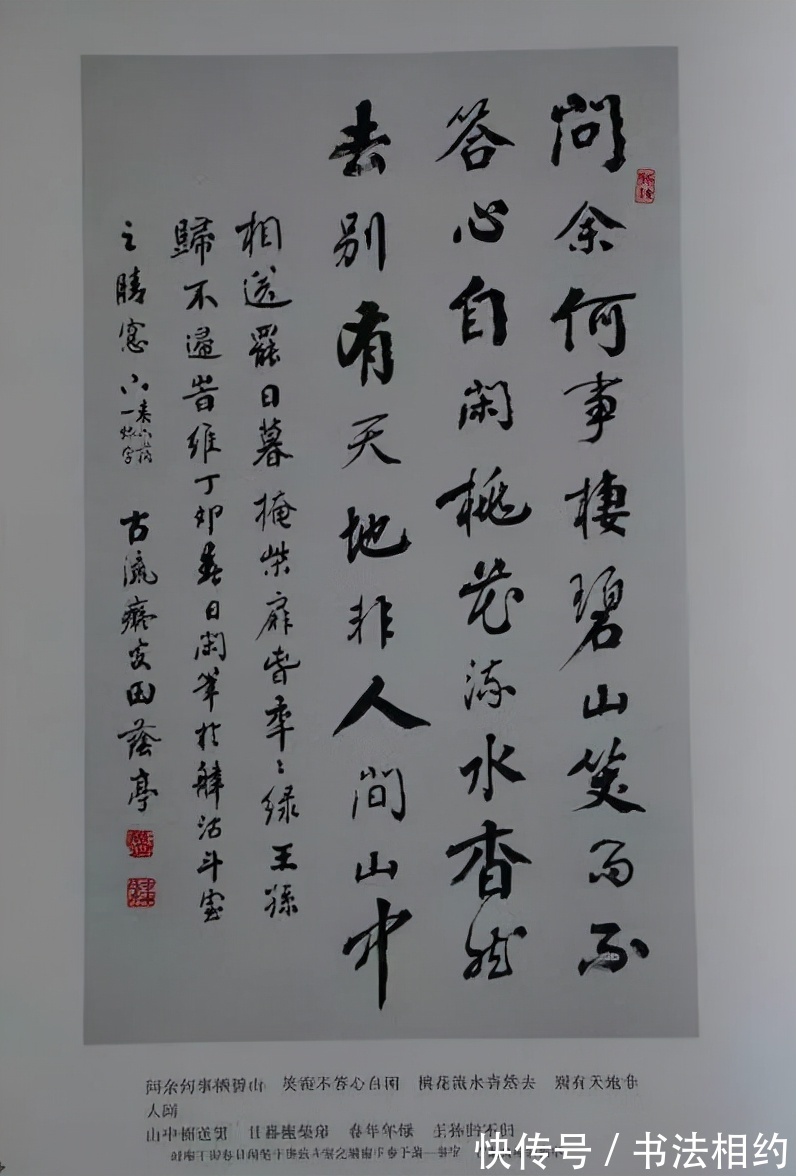 问余何事棲碧山笑而不
答心自闲桃花流水杳然
去别有天地非人间山中
相送罷日暮掩柴扉春草年々绿王孫
歸不
丁卯春日闲筆於 沽斗室
之晴窓下
一 字
古流 田蔭亭
问余何事栖碧山 笑而不答心自闲 桃花流水杳然去 别有天地非
人间
山中相送罢 日暮掩柴扉 春草年年绿 王孙归不归
快传号/书法相约